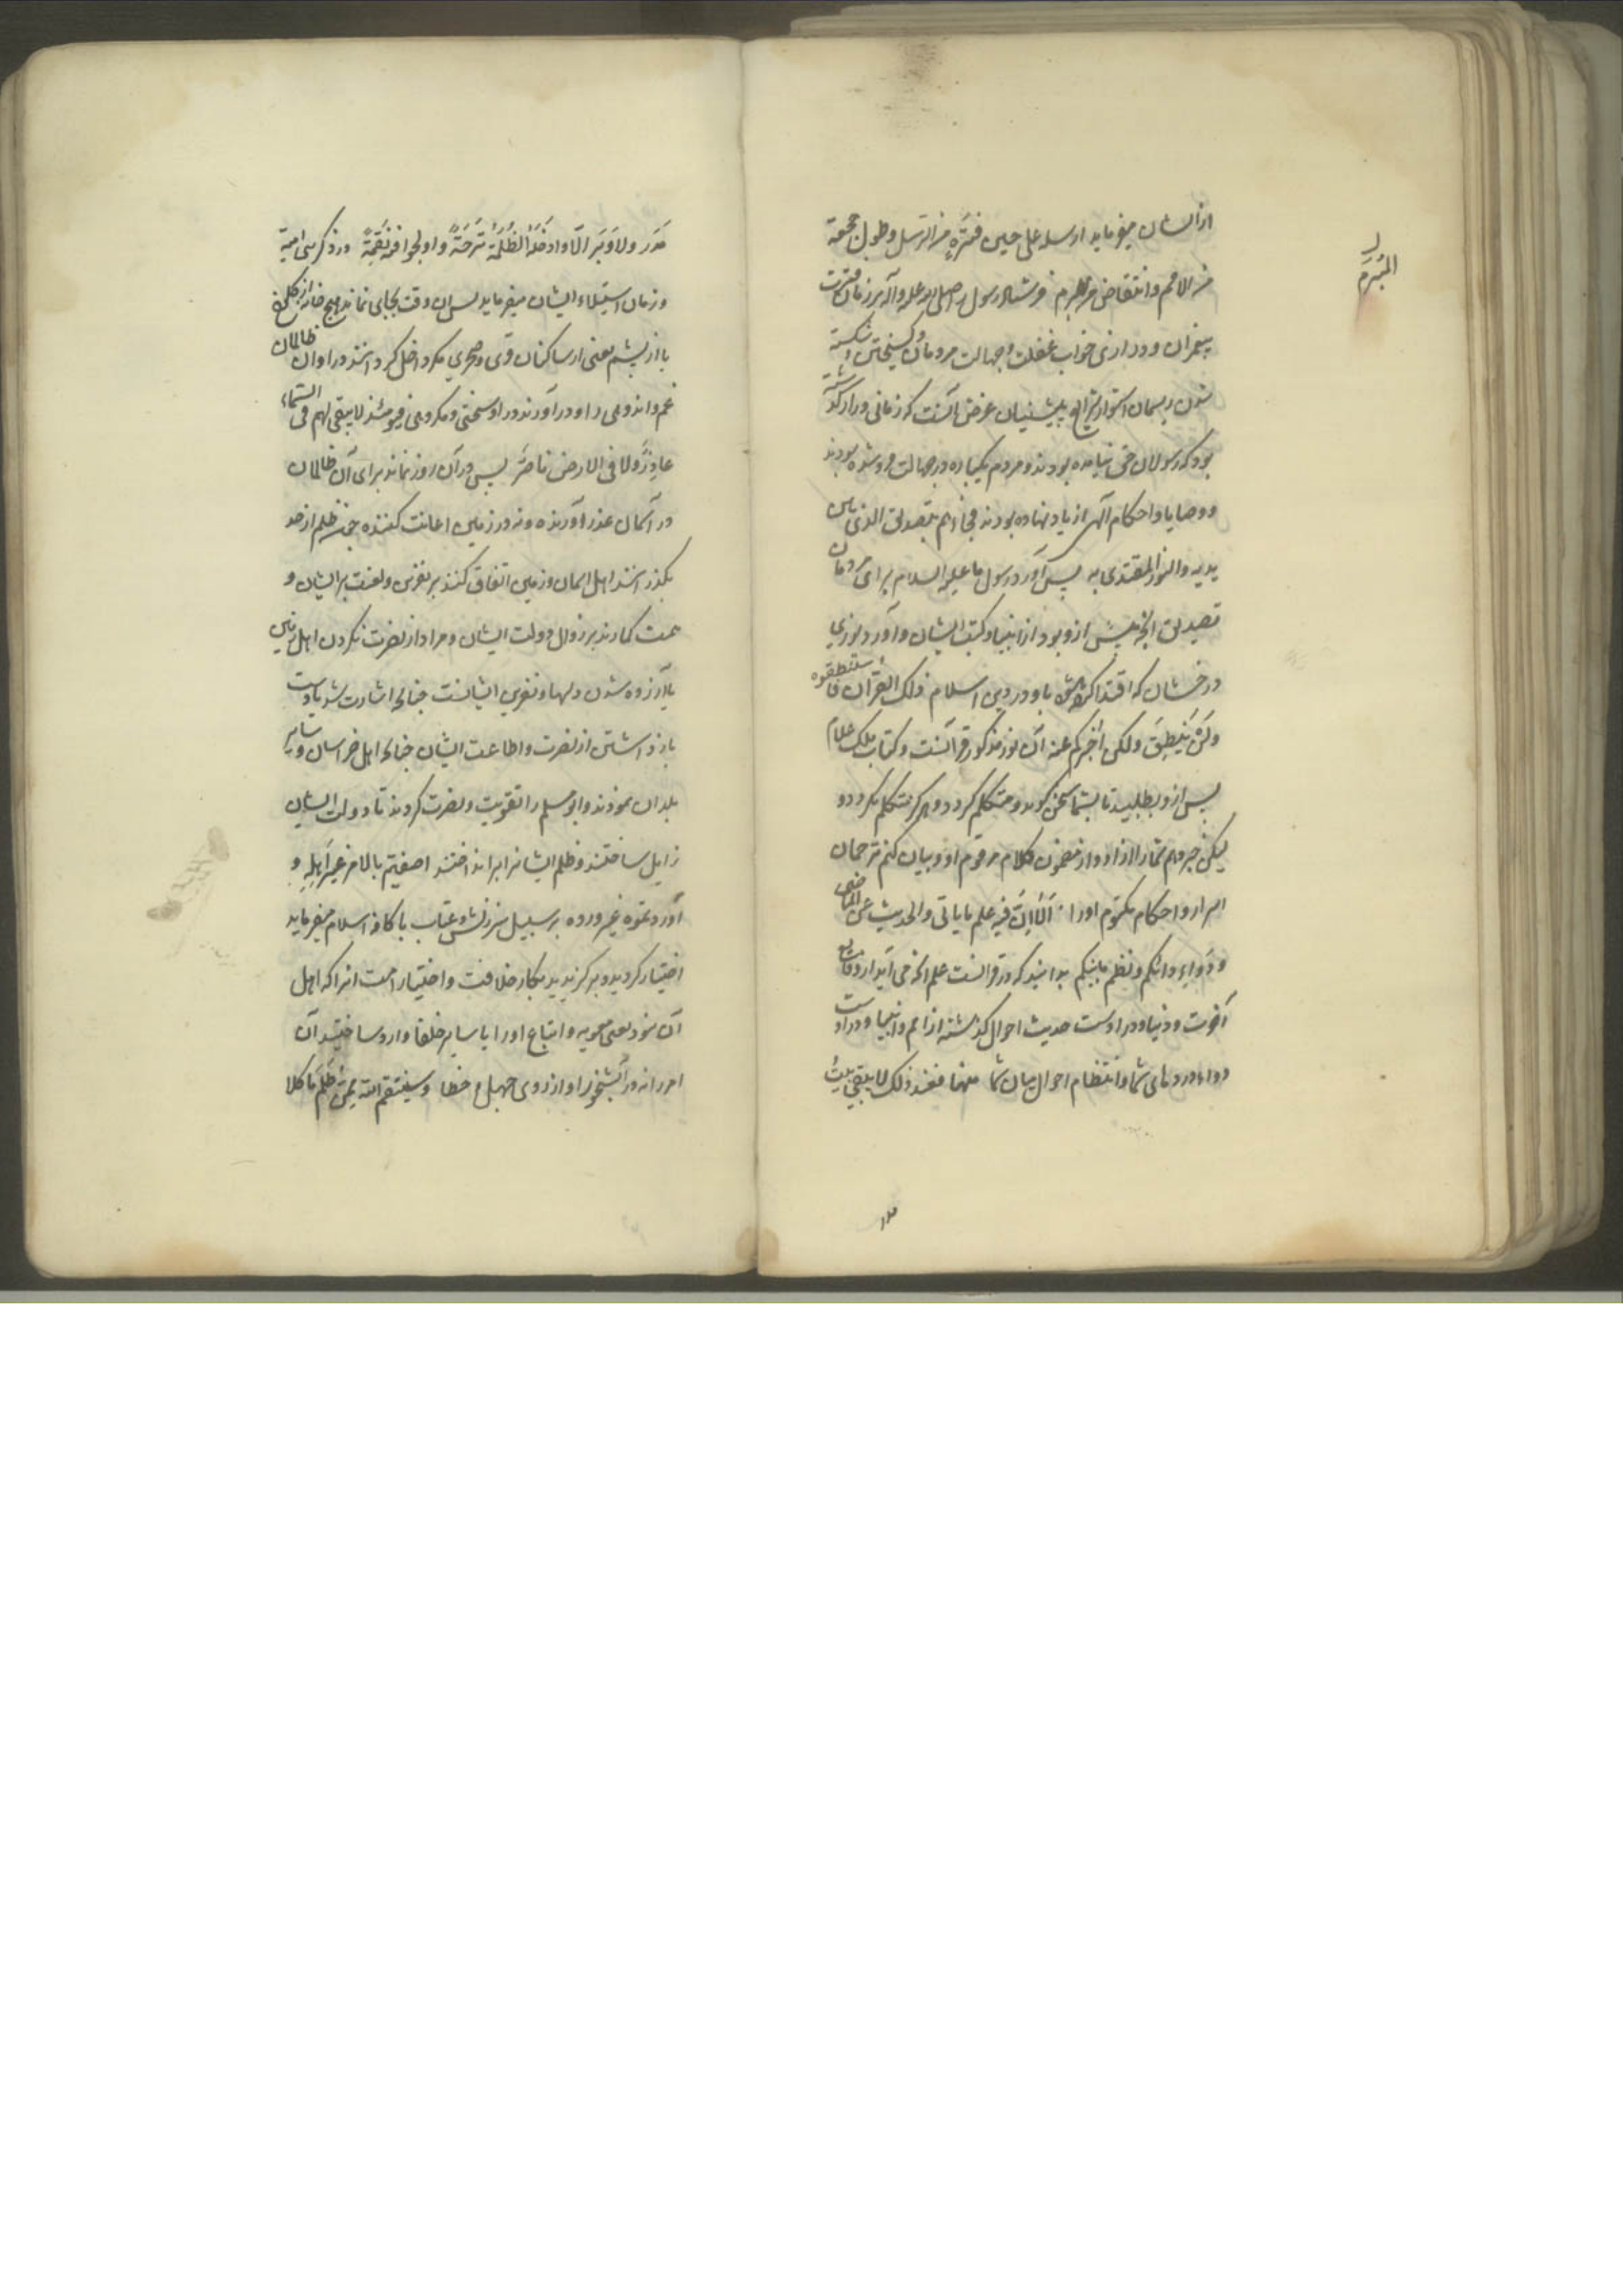 ازایشان میفرماید ارسله علی حین فترةٍ من الرسل وطول هجعة
من الامم وانتقاض من المبرم فرستاد رسول را صلی الله علیه وآله بر زمان فترت
پیغمبران ودرازی خواب غفلت وجهالت مردمان وکسیختن وشکسته
شدن ریسمان استوار شرایع پیشینیان غرض آنست که زمانی دراز گذشته
بود که رسولان حق نیامده بودند ومردم یکباره در جهالت فروشده بودند
ووصایا واحکام آلهی از یاد نهاده بودند فجاءهم بتصدیق الذی بین
یدیه والنور المقتدی به پس آورد رسول ما علیه السلام برای مردمان
تصدیق آنچه پیش ازو بود از انبیا وکتب ایشان وآورد نوری
درخشان که اقتدا کرده شده باو در دین اسلام ذلک القرآن فاستنطقوه
ولن ینطق ولکن اخبرکم عنه آن نور مذکور قرآنست وکتاب ملک علام
پس ازو بطلبید تا بشما سخن کوید ومتکلم کردد وهرکز متکلم نکردد و
لیکن خبر دهم شمارا از او از مضمون کلام مرقوم او وبیان کنم ترجمان
اسرار واحکام مکتوم اورا الا ان فیه علم ما یاتی والحدیث عن الماضی
ودواء دائکم ونظم ما بینکم بدانید که در قرآنست علم آنچه می آید از وقایع
آخرت ودنیا ودر اوست حدیث احوال کذشته از امم وانبیا ودر اوست
دواء دردهای شما وانتظام احوال میان شما منها فعند ذلک لا یبقی بیت
المبرم
مدر
مَدَر ولا وَبَر الّا وادخله الظلمة ترحةً واولجوا فیه نقمةً در ذکر بنی امیة
وزمان استیلاء ایشان میفرماید پس آن وقت بجایی نماند هیچ خانه از کلوخ
یا از پشم یعنی از ساکنان قری وصحرای مکر داخل کرداند در او آن ظالمان
غم واندوهی را ودر آورند در او سختی ومکروهی فیومئذ لا یبقی لهم فی السماء
عاذرٌ ولا فی الارض ناصرٌ پس در آن روز نماند برای آن ظالمان
در آسمان عذر آورنده ونه در زمین اعانت کننده چون ظلم از حد
بکذرانند اهل آسمان وزمین اتفاق کنند بر نفرین ولعنت بر ایشان و
همت کمارند بر زوال دولت ایشان ومراد از نصرت نکردن اهل زمین
یا آزرده شدن دلها ونفرین ایشانست چنانچه اشارت شد یا دست
باز داشتن از نصرت واطاعت ایشان چنانچه اهل خراسان وسایر
بلدان نمودند وابو مسلم را تقویت ونصرت کردند تا دولت ایشان
زایل ساختند وظلم ایشانرا برانداختند اصفیتم بالامر غیر اهله و
آوردتموه غیر ورده بر سبیل سرزنش وعتاب با کافه اسلام میفرماید
اختیار کردید وبرکزیدید بکار خلافت واختیار امت انرا که اهل
آن نبود یعنی معویه واتباع اورا یا سایر خلفا وارد ساختید آن
امر را نه در آبشخور او از روی جهل وخطا وسینتقم الله ممن ظلم ماکلا